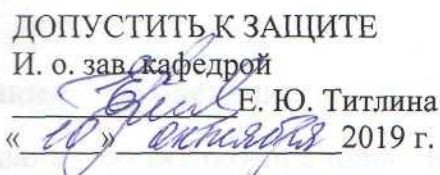 ДОПУСТИТЬ К ЗАЩИТЕ
И. о. зав. кафедрой
Е. Ю. Титлина
«10» октября 2019 г.